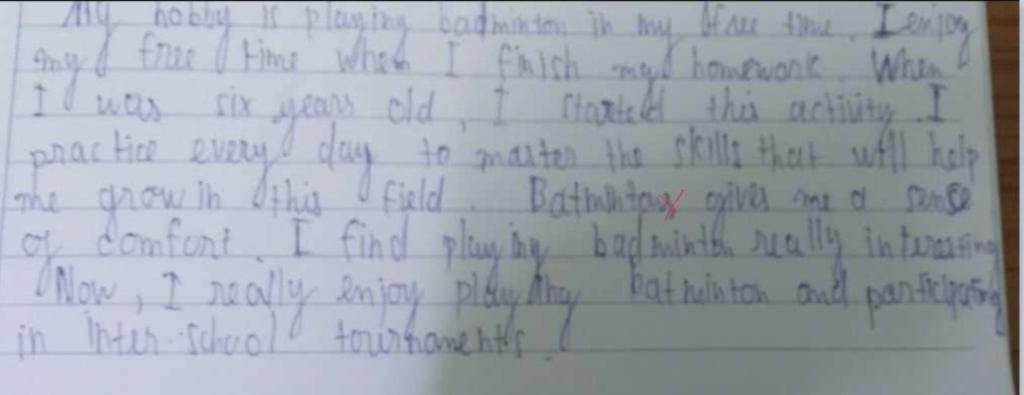 My hobby is playing badminton in my free time. I enjoy
my free time when I finish my homework. When
I was six years old, I started this activity. I
practice every day to master the skills that will help
me grow in this field. Batminton gives me a sense
of comfort. I find playing badminton really interesting
Now, I really enjoy playing batminton and participating
in inter-school tournaments.